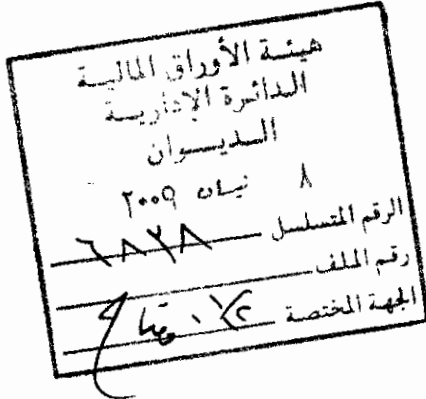 هيئة الأوراق المالية
الدائرة الإدارية
الديوان
٨ نيسان ٢٠٠٩
الرقم المتسلسل ٦٨٧٨
رقم الملف
الجهة المختصة